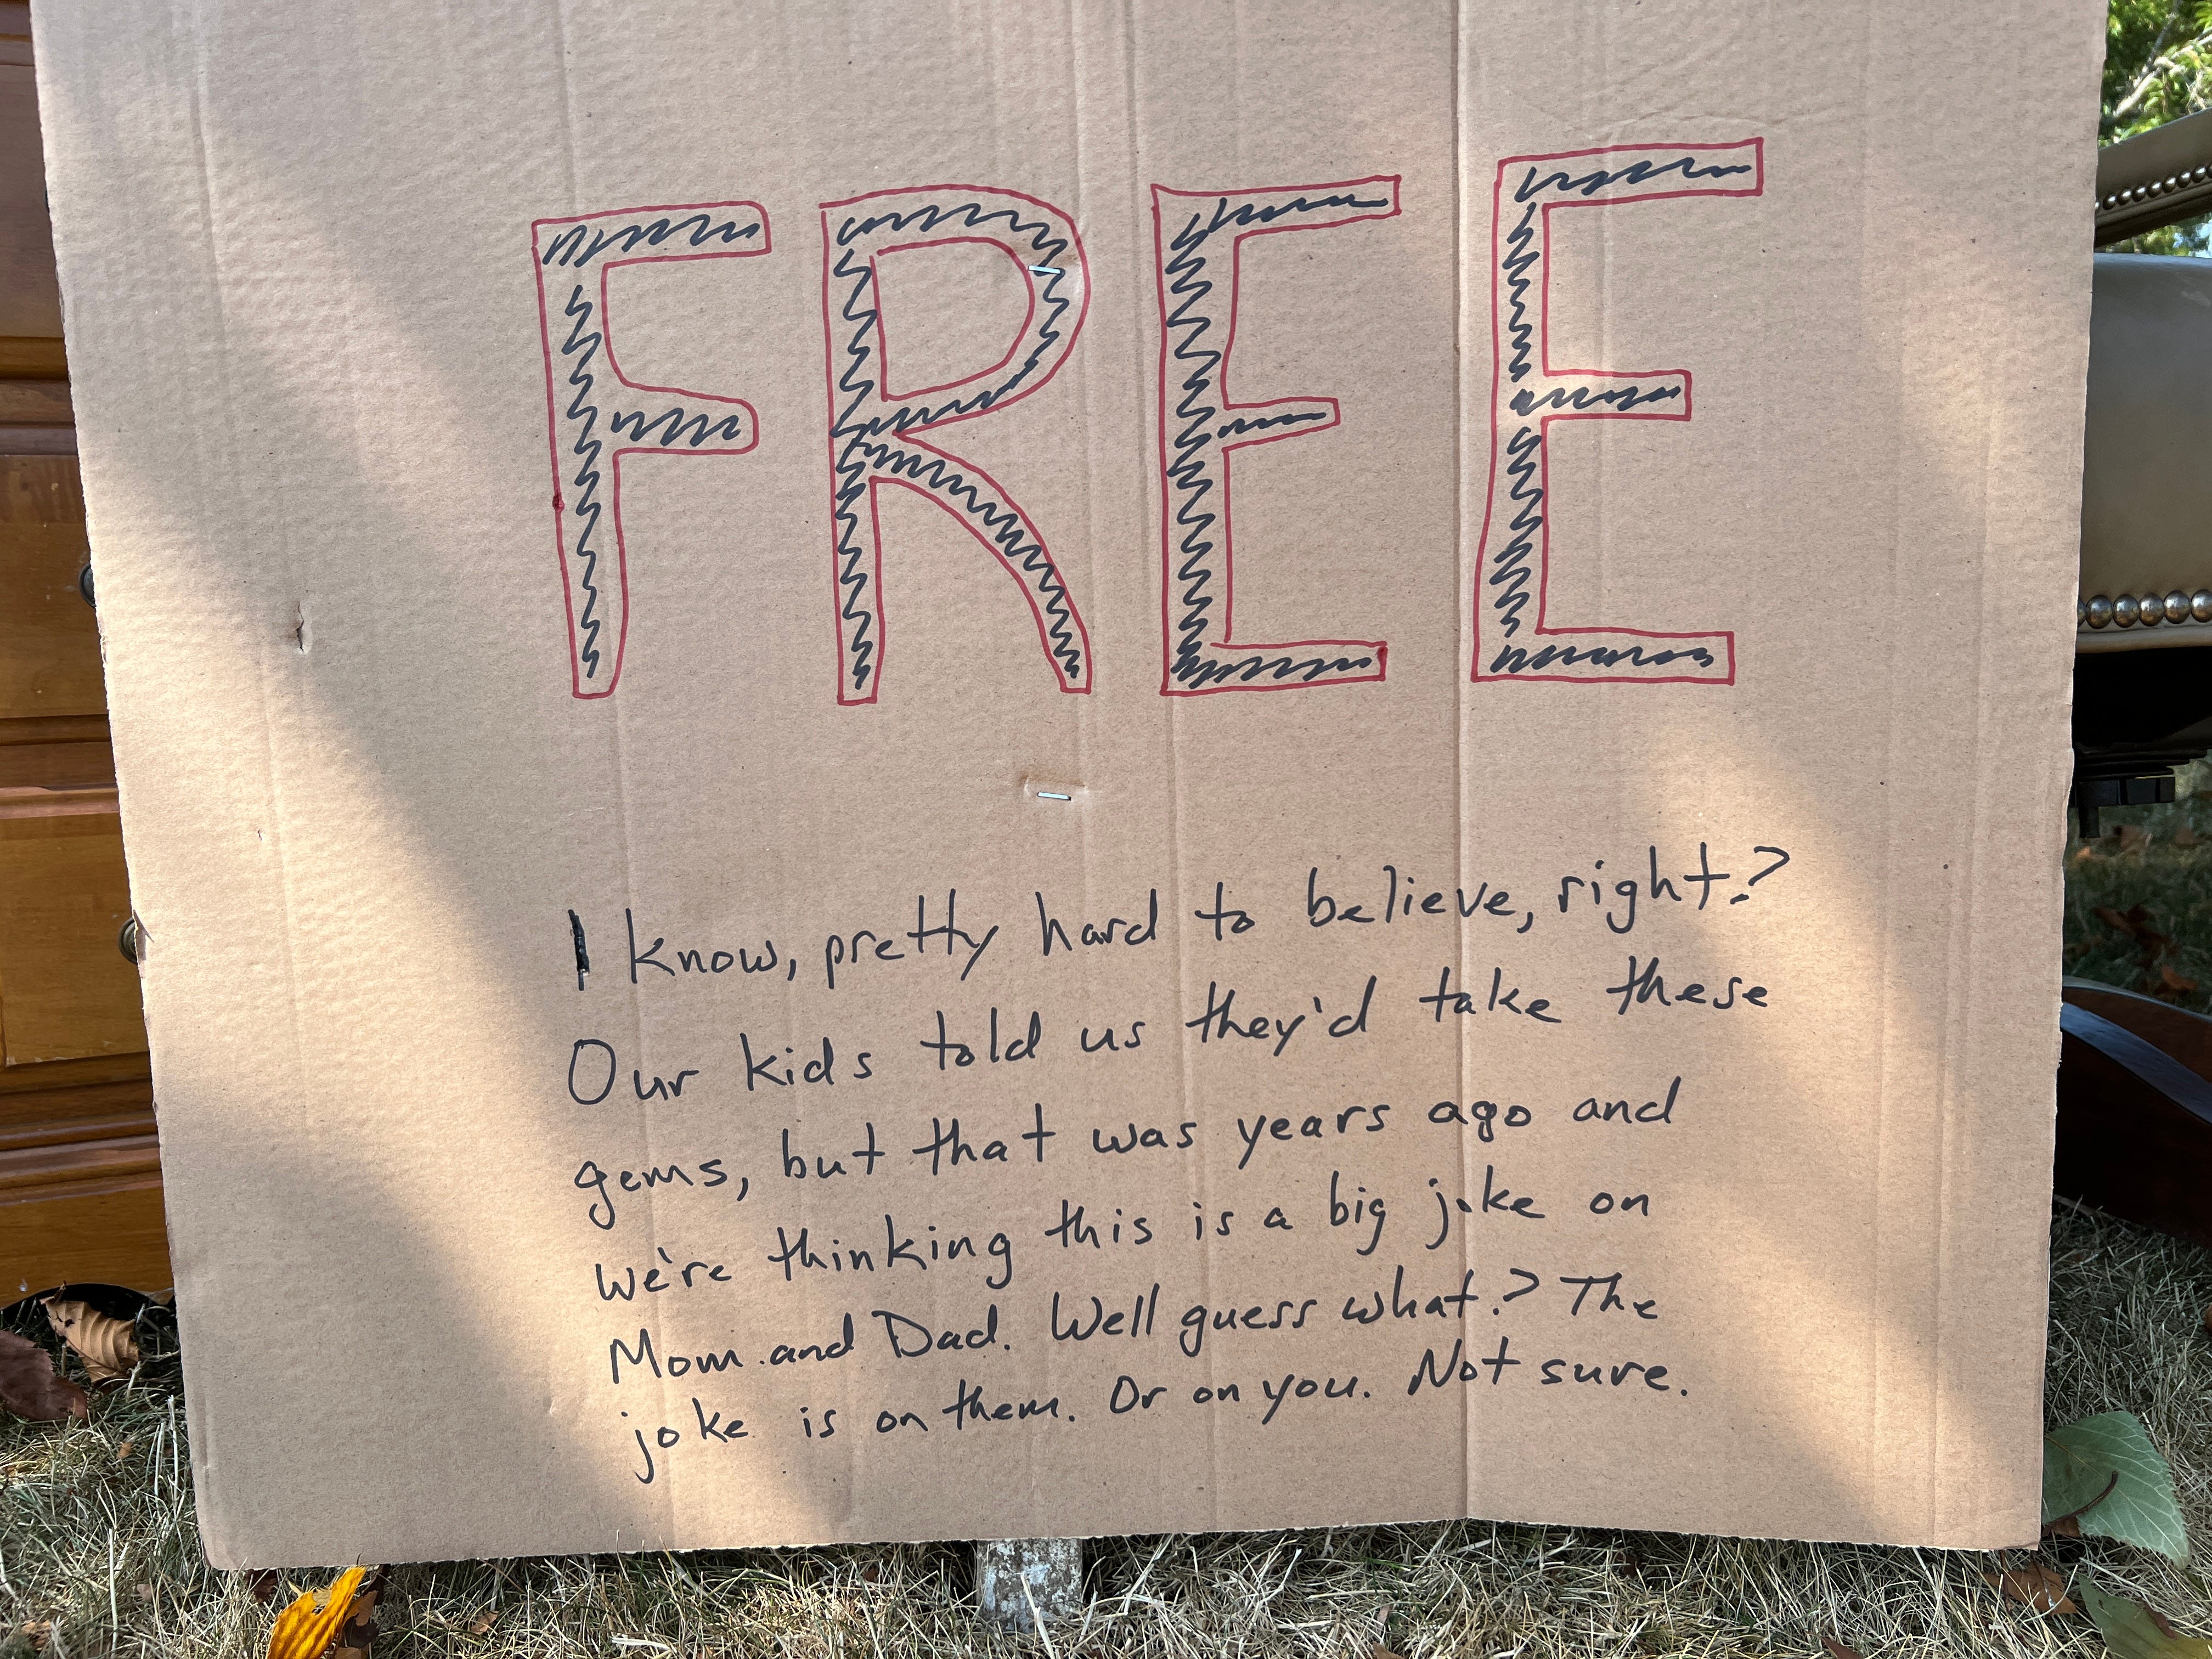 FREE
I know, pretty hard to believe, right?
Our kids told us they'd take these
gems, but that was years ago and
we're thinking this is a big joke on
Mom and Dad. Well guess what? The
joke is on them. Or on you. Not sure.